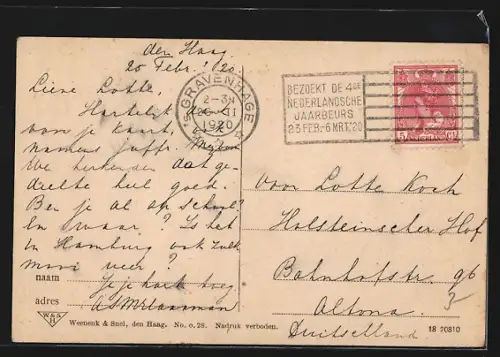 den Haag
20 Febr. '20.
Lieve Lotte,
Hartelijk
voor je kaart,
namens juffr.
We herkenden dat ge-
deelte heel goed.
Ben je al op school?
En waar? Is het
in Hamburg ook zulk
mooi weer?
naam
adres
W&S
H
Weenenk & Snel, den Haag. No. o.28. Nadruk verboden.
'S GRAVENHAGE
2-3N
1920
BEZOEKT DE 4DE
NEDERLANDSCHE
JAARBEURS
23 FEB.-6 MRT.'20
5 CT
NEDERLAND
voor Lotte Koch
Holsteinscher Hof
Bahnhofstr. 96
Altona
Duitschland
18 70810